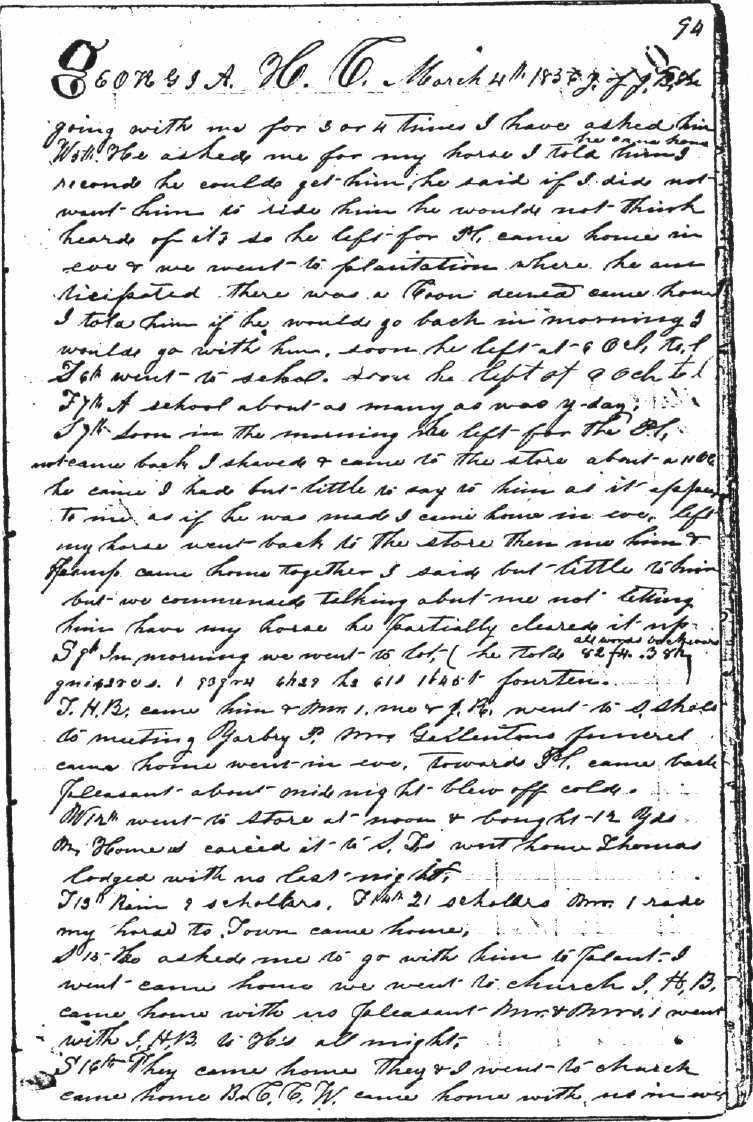 94
GEORGIA. H. T. March 4th 183
going with me for 3 or 4 times I have asked him
he came home
W5th. He asked me for my horse I told him I
recond he could get him, he said if I did not
want him to ride him he would not think
heard of it so he left for Pl. came home in
eve & we went to plantation where he an
ticipated there was a Coon deined came home
I told him if he would go back in morning I
would go with him, soon he left at Ocl,
T6th went to school. soon he left at
F7th A school about as many as was y-day.
S7th Soon in the morning he left for the Pl,
not came back I shaved & came to the store about a 11 OC
he came I had but little to say to him as it appear
to me as if he was mad I came home in eve. left
my horse went back to the store then me him &
came home together I said but little to him
but we commensed talking abut me not letting
him have my horse he partially cleared it up
all words backward
S9th In morning we went to lot, ( he told 82f4. 38
fourten.
T.H.B. came him & Mr. 1. me & J.R. went to S. Shoal
to meeting Yarbry P. Mrs Gellentons funeret
came home went in eve. toward Pl. came back
pleasant about midnight blew off cold.
W12th went to store at noon & bought 12 Yds
Home caried it to S. went home Thomas
lodged with us last night.
T13th Rain 9 schollers, F14th 21 schollers Mr. 1 rode
my horse to Town came home,
S15 He asked me to go with him to plant. I
went came home we went to church I. H. B.
came home with us pleasant Mr. & Mrs. 1 went
with I.H.B. to H's all night.
S16th They came home they & I went to church
came home B. C. C. W. came home with us in eve